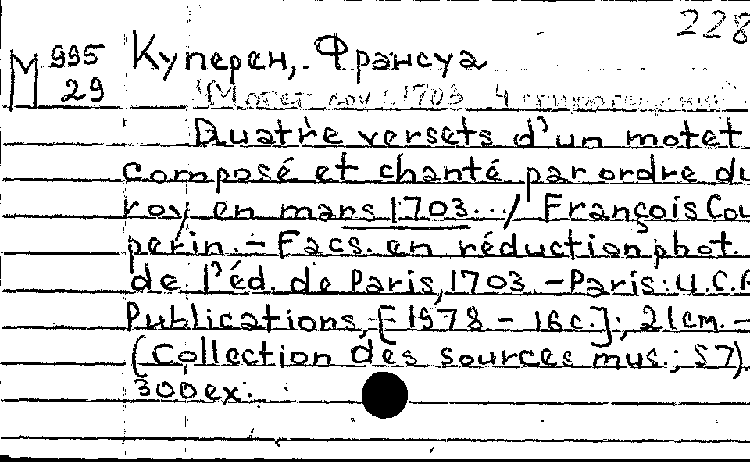 228
М 995 Куперен, Франсуа
29
"Мотет 1703
Quatre versets d'un motet
composé et chanté par ordre du
roy en mars 1703../ François Cou
perin.- Facs. en réduction phot.
de l'éd. de Paris, 1703. -Paris: U.C.P
Publications, [1978 - 16c.]; 21cm.-
(Collection des sources mus.; 57).
300ex.